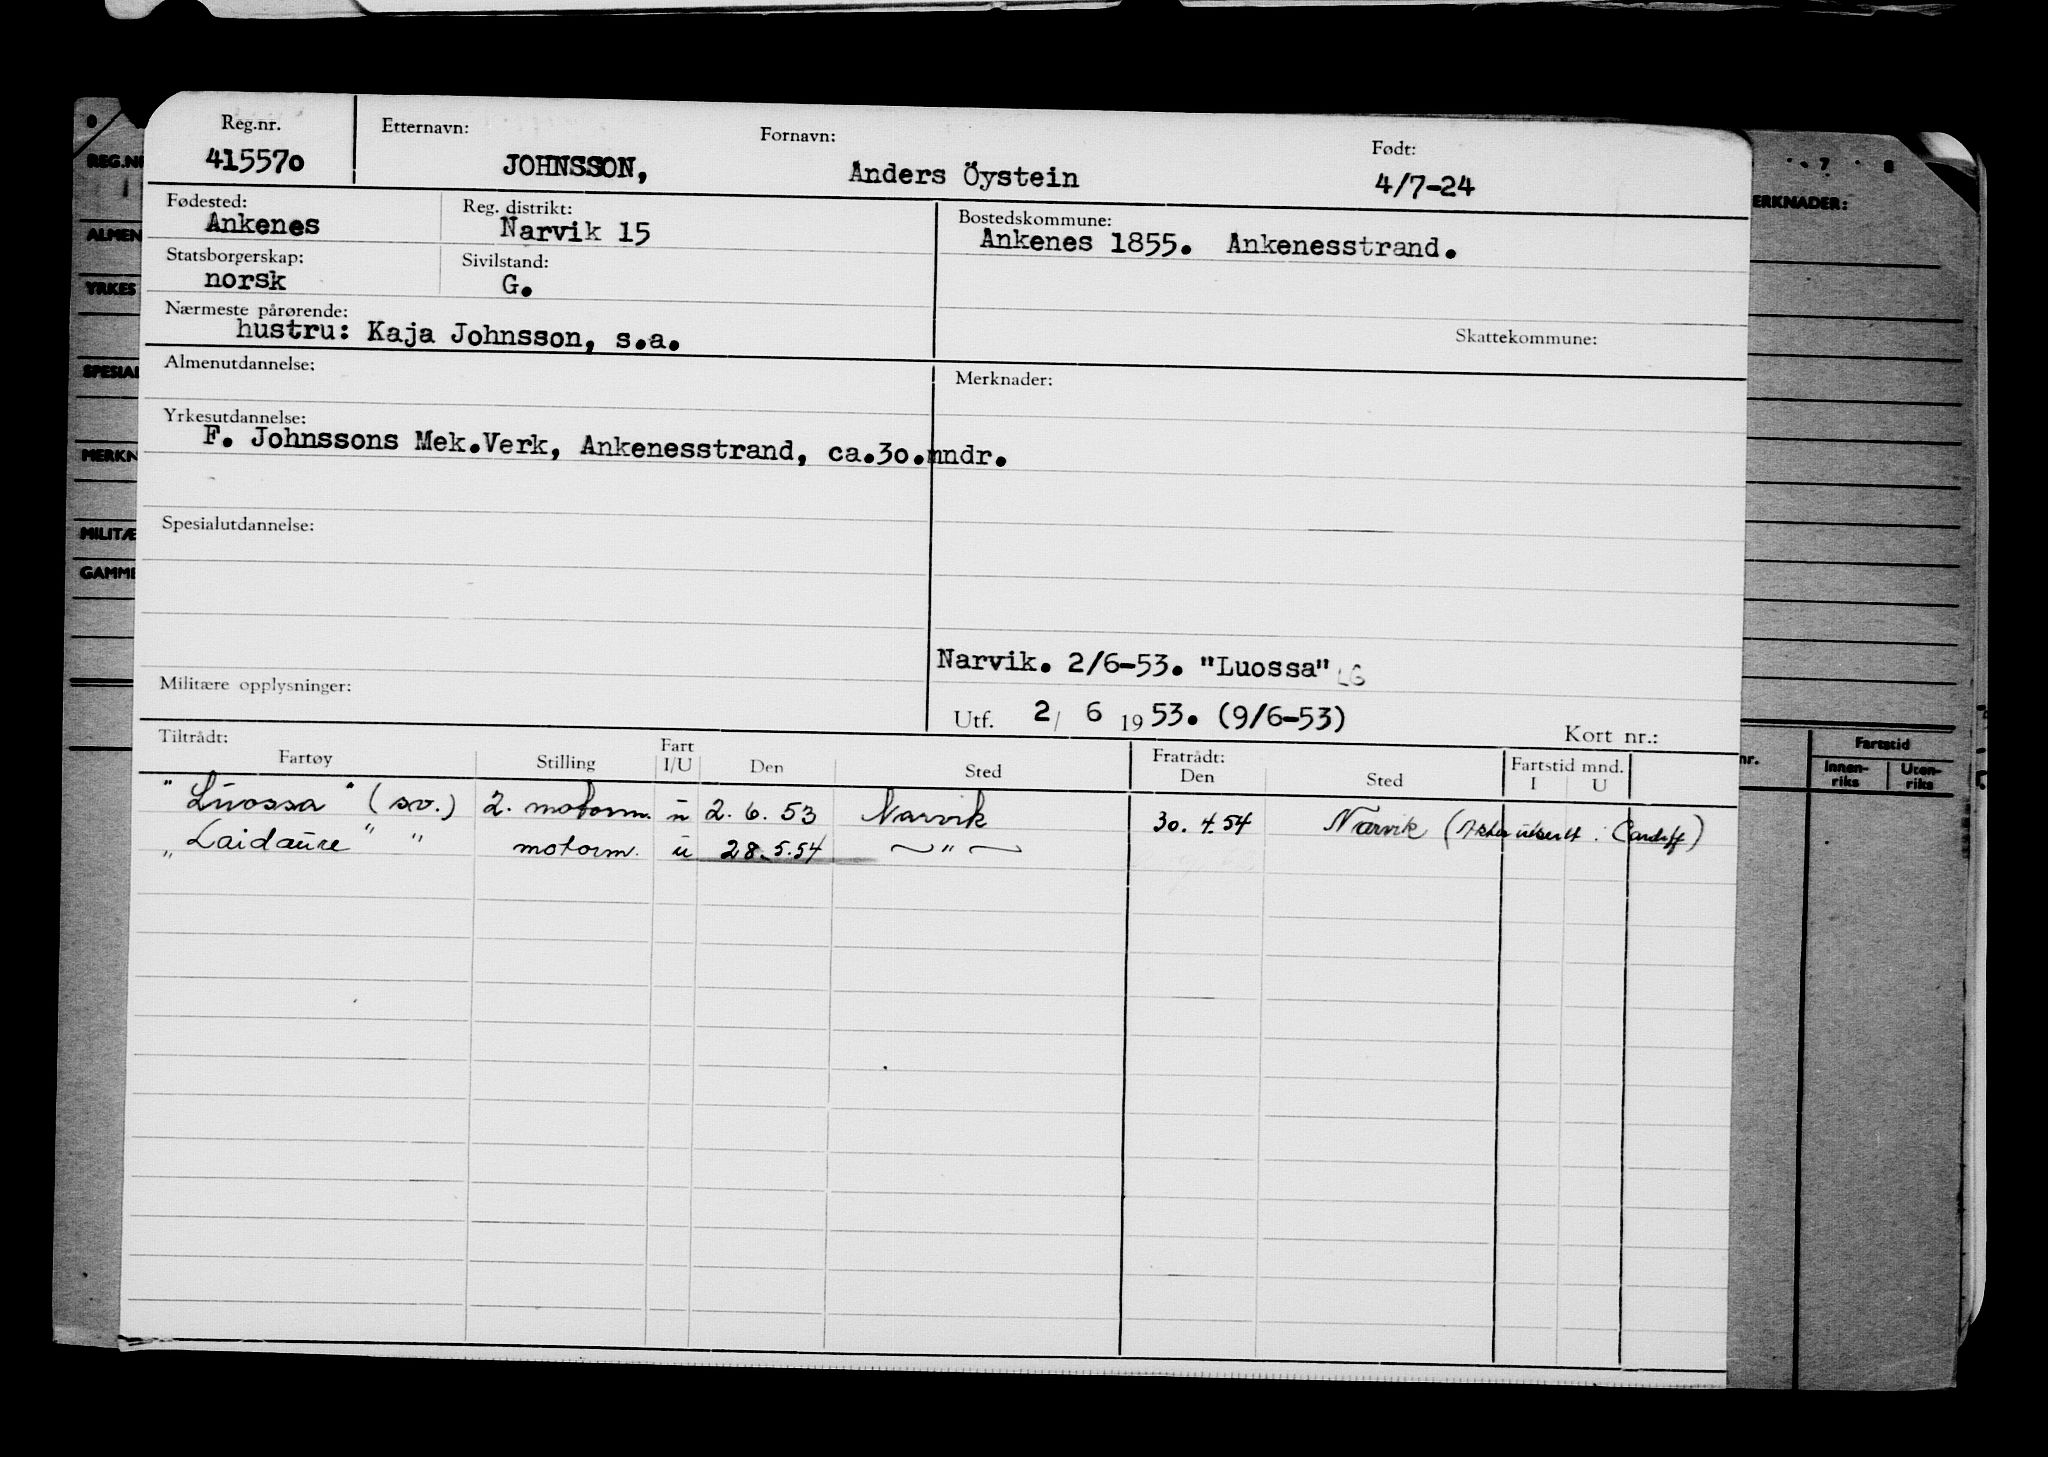 Reg.nr. Etternavn: Fornavn: Født:
41557o JOHNSSON, Anders Öystein 4/7-24
Fødested: Reg. distrikt: Bostedskommune:
Ankenes Narvik 15 Ankenes 1855. Ankenesstrand.
Statsborgerskap: Sivilstand:
norsk G.
Nærmeste pårørende: Skattekommune:
hustru: Kaja Johnsson, s.a.
Almenutdannelse: Merknader:
Yrkesutdannelse:
F. Johnssons Mek.Verk, Ankenesstrand, ca.3o.mndr.
Spesialutdannelse:
Narvik. 2/6-53. "Luossa" LG
Militære opplysninger:
Utf. 2/ 6 1953. (9/6-53) Kort nr.:
Tiltrådt: Fratrådt:
Fartøy Stilling Fart I/U Den Sted Den Sted Fartstid mnd. I U
"Luossa" (sv.) 2. motorm. u 2.6.53 Narvik 30.4.54 Narvik ( i Cardiff)
"Laidaure" " motorm. u 28.5.54 — " —
REG.NR
ALMEN
YRKES
SPESIAL
MERKN
MILITÆ
GAMME
7 8
ERKNADER:
nr. Fartstid
Innen-riks Uten-riks